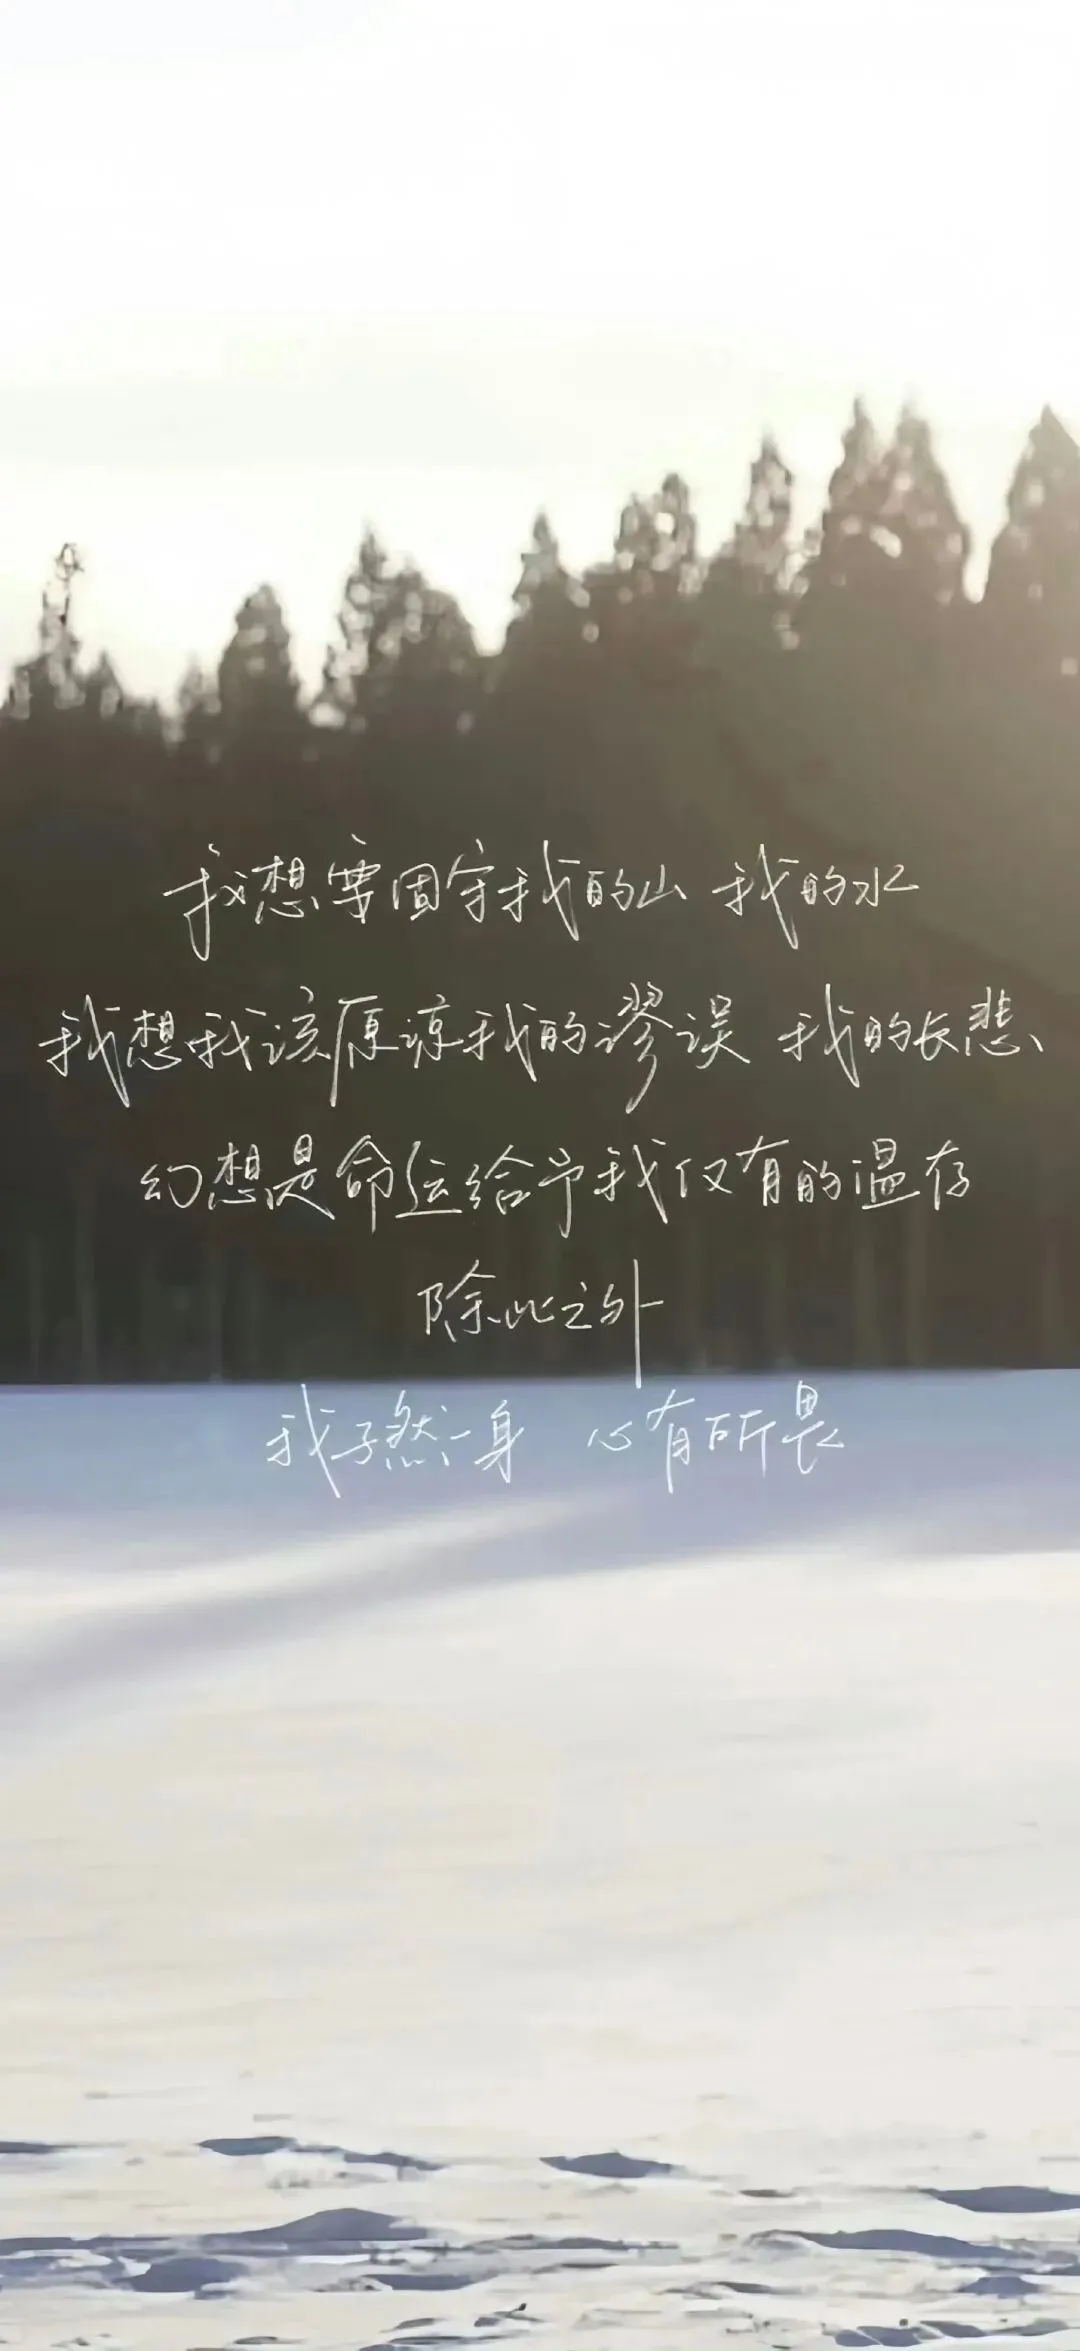 我想要固守我的山 我的水
我想我该原谅我的谬误 我的长悲
幻想是命运给予我仅有的温存
除此之外
我孑然一身 心有所畏